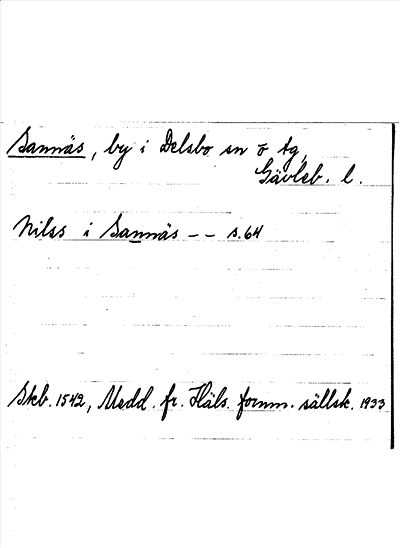 Sannäs, by i Delsbo sn o tg,
Gävleb. l.
Nilss i Sannäs -- s. 64
Skb. 1542, Medd. fr. Häls. fornm. sällsk. 1933